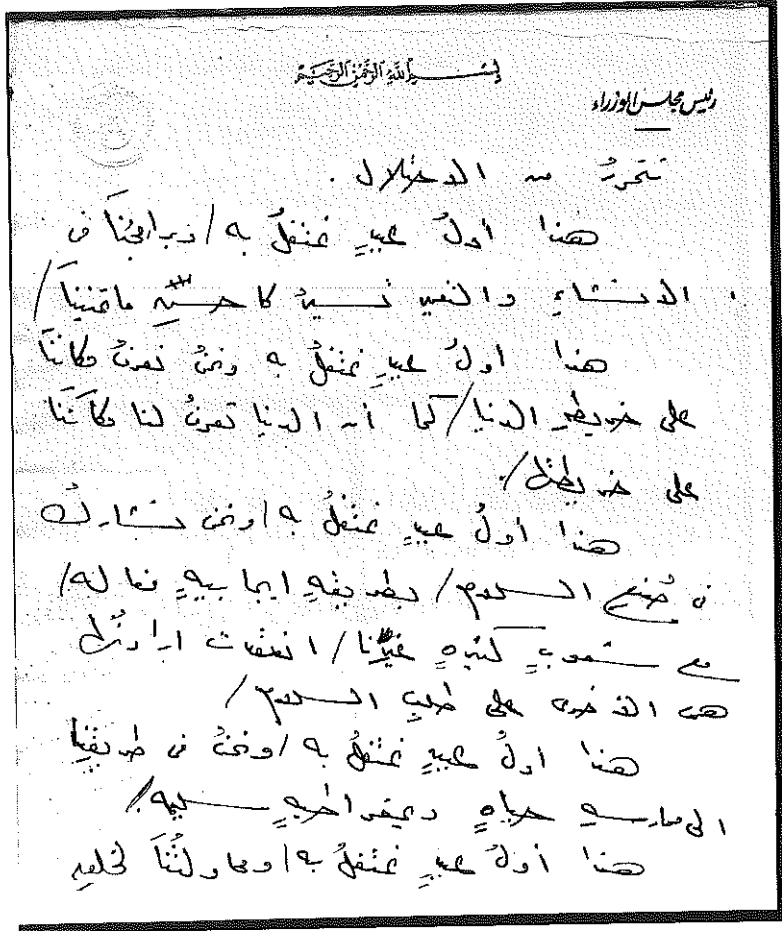 بسم الله الرحمن الرحيم
رئيس مجلس الوزراء
نتحررُ من الاحتلال .
هذا أولُ عيدٍ نحتفلُ به / وبرامجُنا في
الانشاءِ والتعمير تسيرُ كأحسنِ ما تمنينا /
هذا أولُ عيدٍ نحتفلُ به ونحنُ نعرفُ مكاننا
على خريطةِ الدنيا / كما أن الدنيا تعرفُ لنا مكانَنا
على خريطتها /
هذا أولُ عيدٍ نحتفلُ به / ونحن نشاركُ
في صُنعِ السلام / بطريقةٍ ايجابيةٍ فعاله /
مع شعوبٍ كثيرهٍ غيرِنا / انعقدت ارادتُها
هى الأخرى على طلبِ السلام /
هذا أولُ عيدٍ نحتفلُ به / ونحنُ في طريقِنا
الى ممارسةِ حياهٍ ديمقراطيهٍ سليمه /
هذا أولُ عيدٍ نحتفلُ به / ومحاولتُنا لخلقِ